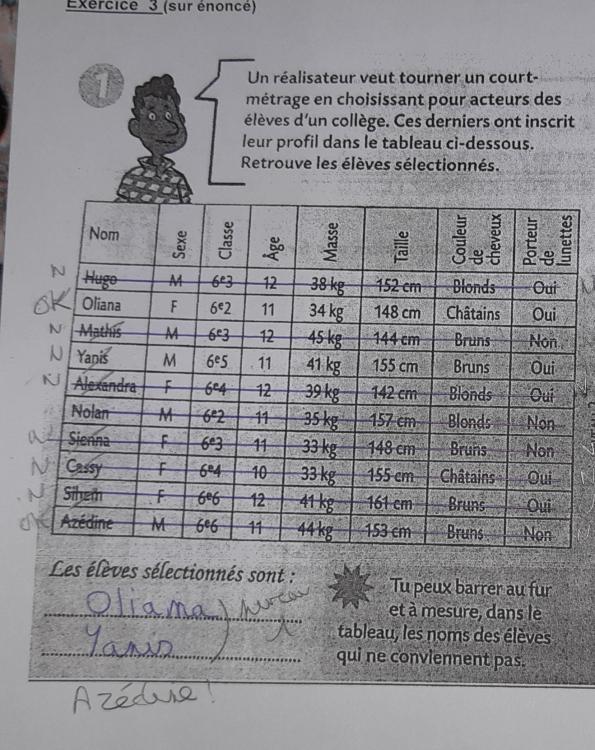 Exercice 3 (sur énoncé)
1
Un réalisateur veut tourner un court-
métrage en choisissant pour acteurs des
élèves d'un collège. Ces derniers ont inscrit
leur profil dans le tableau ci-dessous.
Retrouve les élèves sélectionnés.
Nom Sexe Classe Âge Masse Taille Couleur de cheveux Porteur de lunettes
N Hugo M 6e3 12 38 kg 152 cm Blonds Oui
OK Oliana F 6e2 11 34 kg 148 cm Châtains Oui
N Mathis M 6e3 12 45 kg 144 cm Bruns Non
N Yanis M 6e5 11 41 kg 155 cm Bruns Oui
N Alexandra F 6e4 12 39 kg 142 cm Blonds Oui
Nolan M 6e2 11 35 kg 157 cm Blonds Non
Sienna F 6e3 11 33 kg 148 cm Bruns Non
N Cassy F 6e4 10 33 kg 155 cm Châtains Oui
N Sihem F 6e6 12 41 kg 161 cm Bruns Oui
OK Azédine M 6e6 11 44 kg 153 cm Bruns Non
Les élèves sélectionnés sont :
Oliana
Yanis
Azédine !
Tu peux barrer au fur
et à mesure, dans le
tableau, les noms des élèves
qui ne conviennent pas.